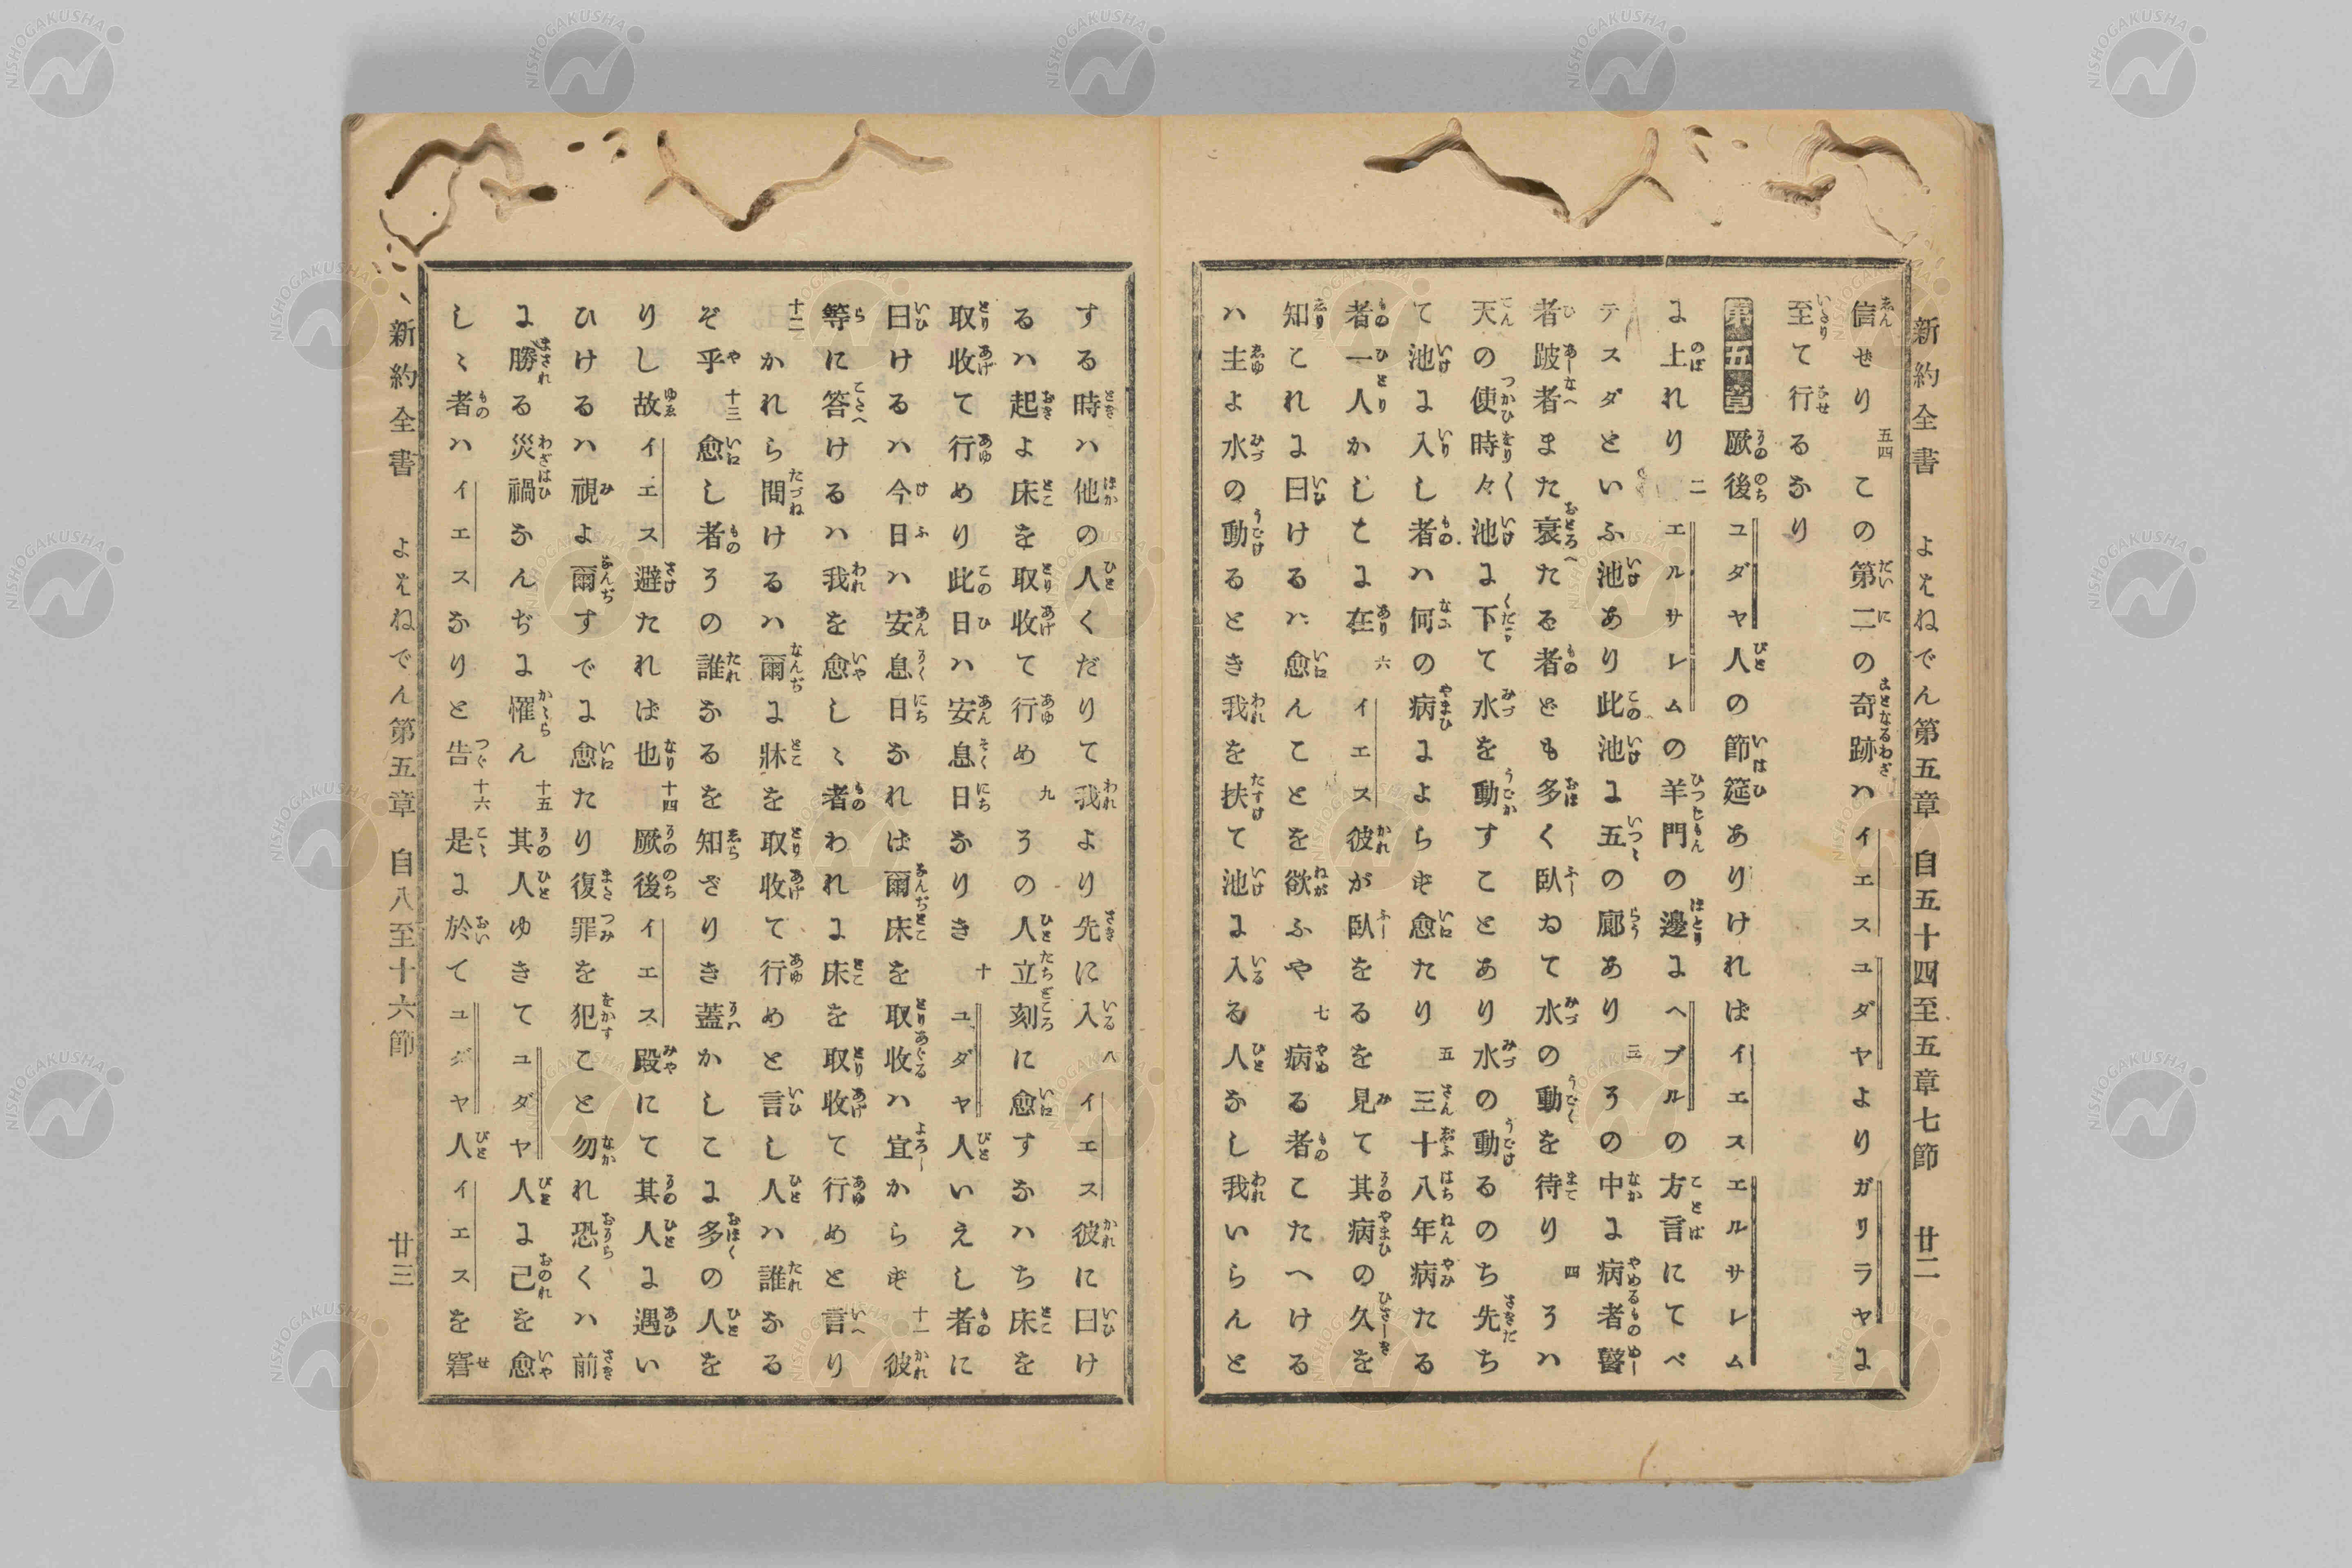 新約全書 よはねでん第五章 自五十四至五章七節 廿二
信せり 五四 この第二の奇跡ハイエスユダヤよりガリラヤに
至て行るなり
第五章 厥後ユダヤ人の節筵ありけれはイエスエルサレム
に上れり 二 エルサレムの羊門の邊にヘブルの方言にてベ
テスダといふ池あり此池に五の廊あり 三 その中に病者瞽
者跛者また衰たる者ども多く臥ゐて水の動を待り 四 そハ
天の使時々池に下て水を動すことあり水の動るのち先ち
て池に入し者ハ何の病によらず愈たり 五 三十八年病たる
者一人かしこに在 六 イエス彼が臥をるを見て其病の久を
知これに曰けるハ愈んことを欲ふや 七 病る者こたへける
ハ主よ水の動るとき我を扶て池に入る人なし我いらんと
する時ハ他の人くだりて我より先に入 八 イエス彼に曰け
るハ起よ床を取收て行め 九 その人立刻に愈すなハち床を
取收て行めり此日ハ安息日なりき 十 ユダヤ人いえし者に
曰けるハ今日ハ安息日なれは爾床を取收ハ宜からず 十一 彼
等に答けるハ我を愈しゝ者われに床を取收て行めと言り
十二 かれら間けるハ爾に牀を取收て行めと言し人ハ誰なる
ぞ乎 十三 愈し者その誰なるを知ざりき蓋かしこに多の人を
りし故イエス避たれは也 十四 厥後イエス殿にて其人に遇い
ひけるハ視よ爾すでに愈たり復罪を犯こと勿れ恐くハ前
に勝る災禍なんぢに罹ん 十五 其人ゆきてユダヤ人に己を愈
しゝ者ハイエスなりと告 十六 是に於てユダヤ人イエスを窘
新約全書 よはねでん第五章 自八至十六節 廿三
NISHOGAKUSHA